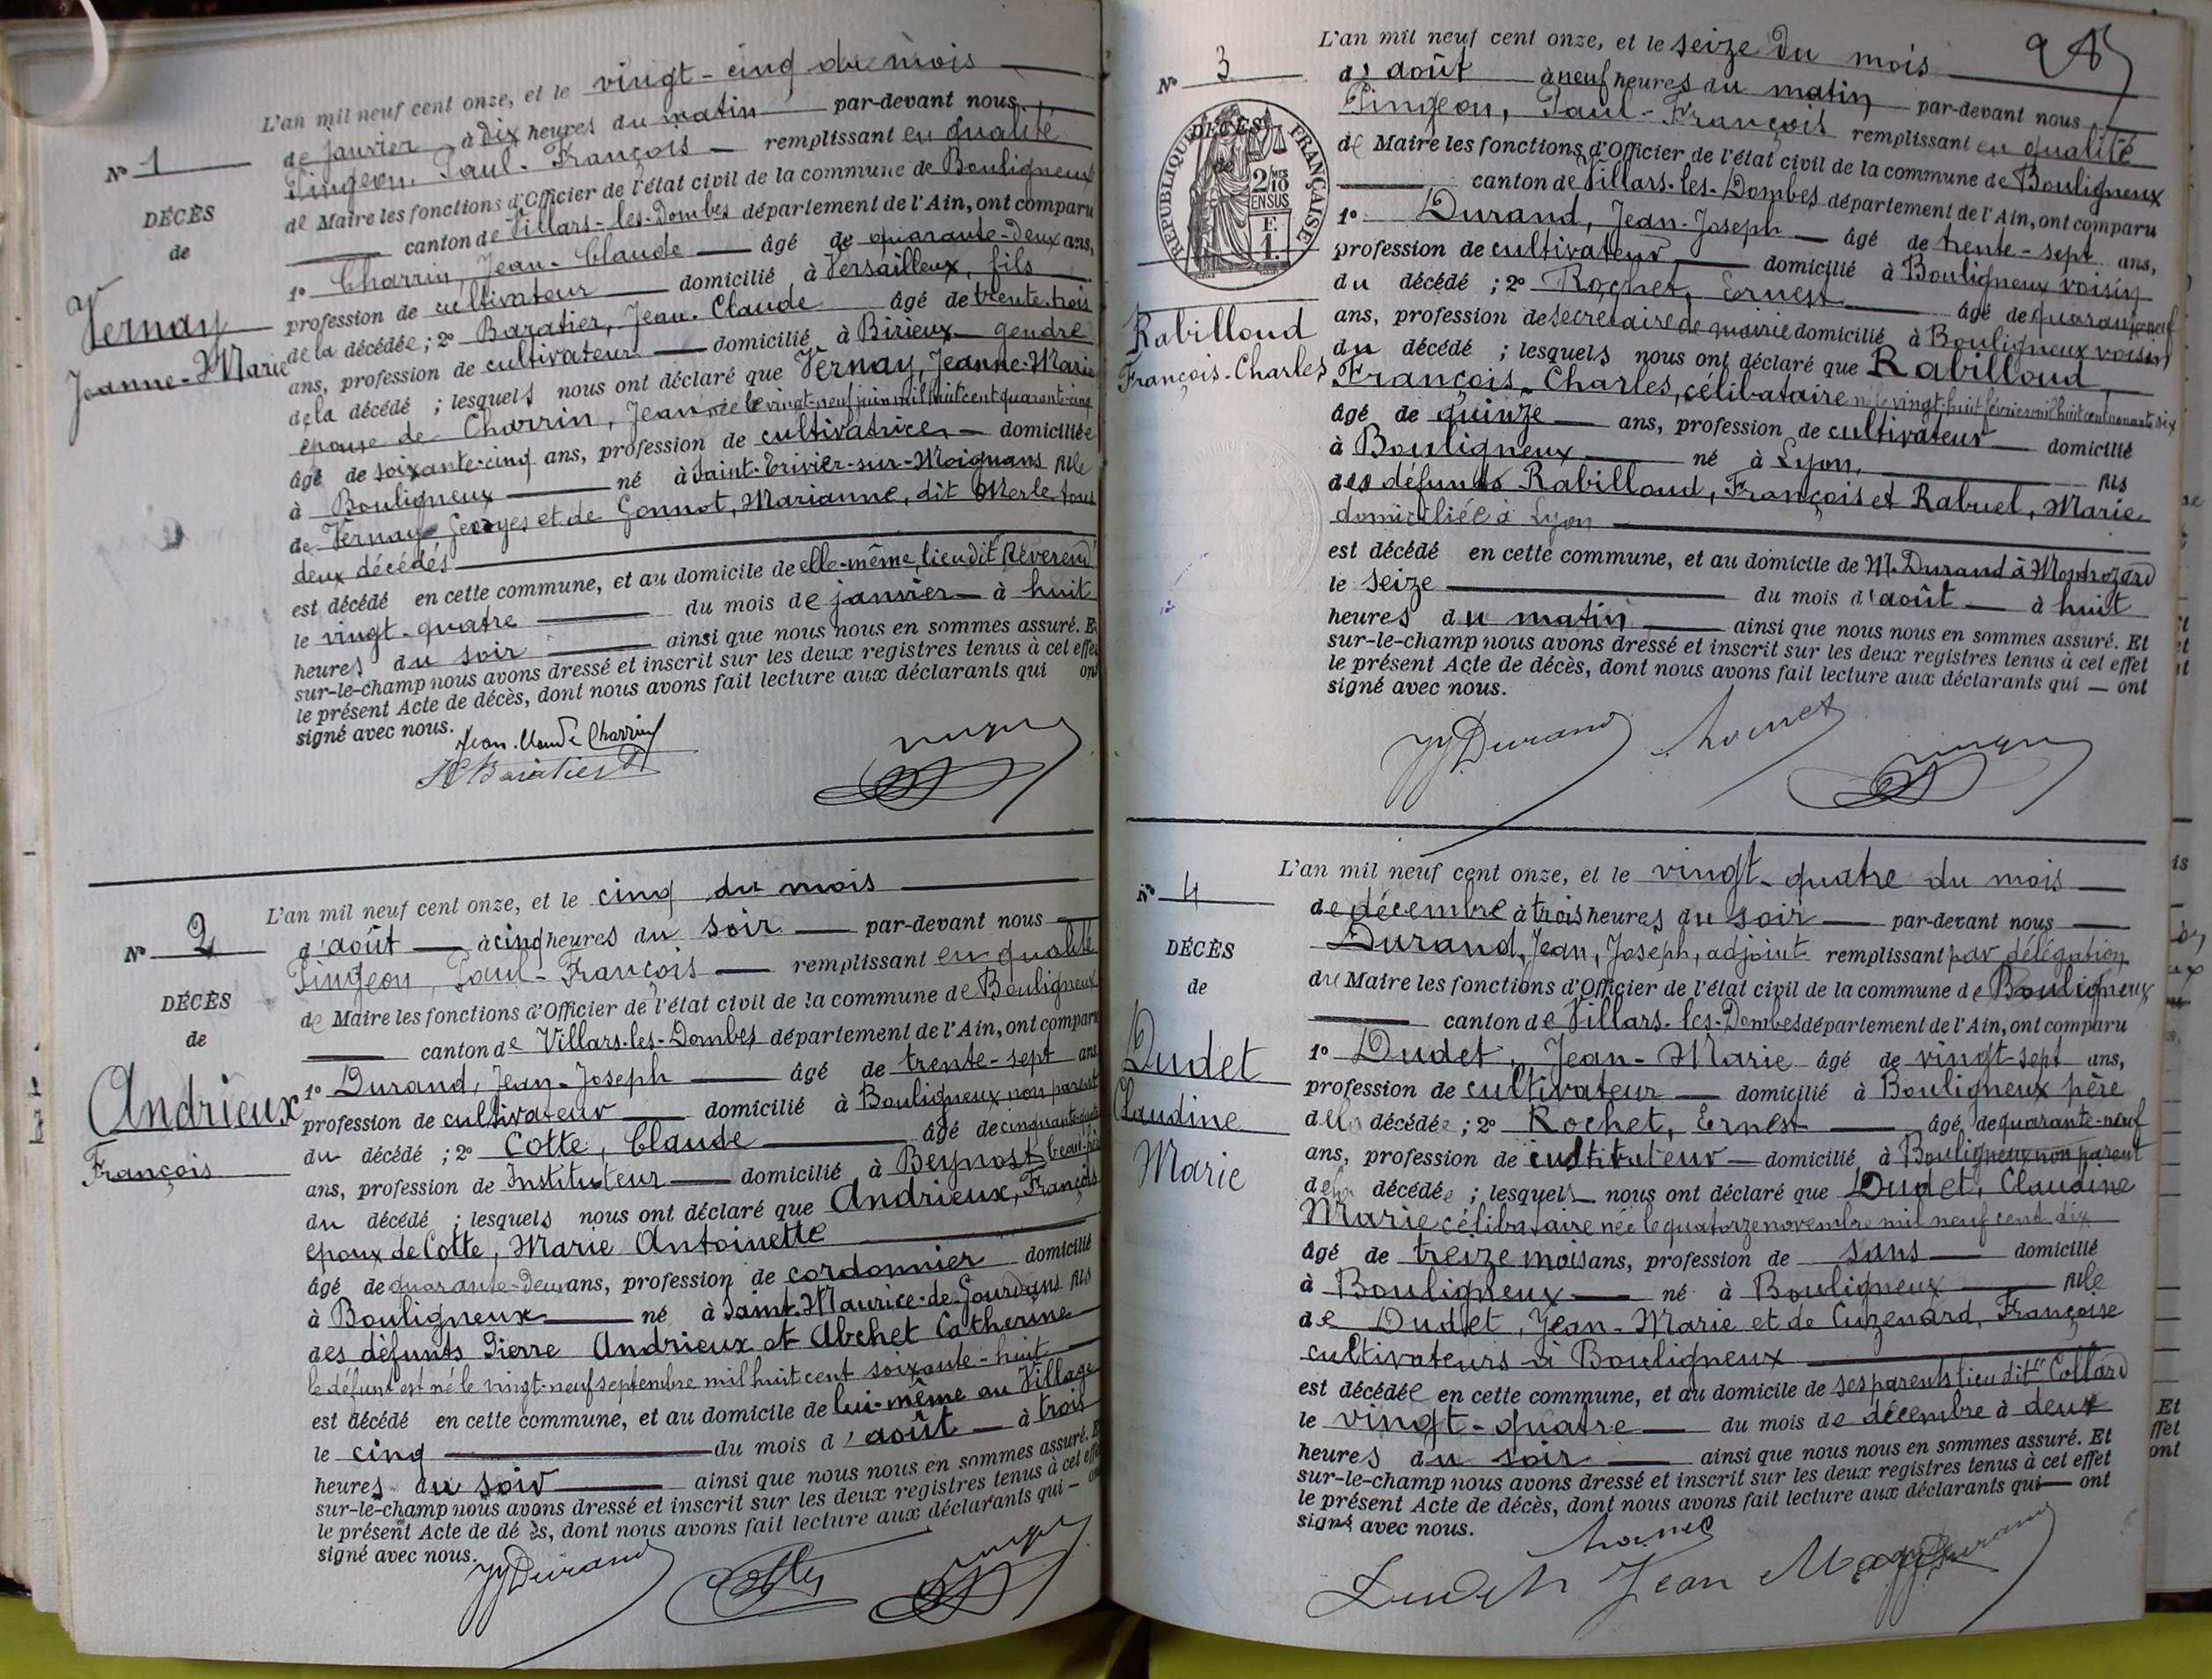 L'an mil neuf cent onze, et le vingt-cinq du mois
N° 1
de janvier à dix heures du matin par-devant nous
Pingeon, Paul-François remplissant en qualité
de Maire les fonctions d'Officier de l'état civil de la commune de Bouligneux
canton de Villars-les-Dombes département de l'Ain, ont comparu
1° Charrin, Jean-Claude âgé de quarante-deux ans,
profession de cultivateur domicilié à Versailleux, fils
de la décédée ; 2° Baratier, Jean-Claude âgé de trente-trois
ans, profession de cultivateur domicilié à Birieux gendre
de la décédé ; lesquels nous ont déclaré que Vernay, Jeanne-Marie
épouse de Charrin, Jean, née le vingt-neuf juin mil huit cent quarante-cinq
âgé de soixante-cinq ans, profession de cultivatrice domiciliée
à Bouligneux né à Saint-Trivier-sur-Moignans fille
de Vernay Georges et de Gonnot, Marianne, dit Merle tous
deux décédés
est décédé en cette commune, et au domicile de elle-même, lieu dit Reverend
le vingt-quatre du mois de janvier à huit
heures du soir ainsi que nous nous en sommes assuré. E
sur-le-champ nous avons dressé et inscrit sur les deux registres tenus à cet effe
le présent Acte de décès, dont nous avons fait lecture aux déclarants qui on
signé avec nous.
Jean-Claude Charrin
JC Baratier
DÉCÈS
de
Vernay
Jeanne-Marie
L'an mil neuf cent onze, et le cinq du mois
N° 2
d'août à cinq heures du soir par-devant nous
Pingeon, Paul-François remplissant en qualité
de Maire les fonctions d'Officier de l'état civil de la commune de Bouligneux
canton de Villars-les-Dombes département de l'Ain, ont comparu
1° Durand, Jean-Joseph âgé de trente-sept ans
profession de cultivateur domicilié à Bouligneux non parent
du décédé ; 2° Cotte, Claude âgé de
ans, profession de Instituteur domicilié à Beynost beau-
du décédé ; lesquels nous ont déclaré que Andrieux, François
époux de Cotte, Marie Antoinette
âgé de quarante-deux ans, profession de cordonnier domicilié
à Bouligneux né à Saint-Maurice-de-Gourdans fils
des défunts Pierre Andrieux et Abchet Catherine
le défunt est né le vingt-neuf septembre mil huit cent soixante-huit
est décédé en cette commune, et au domicile de lui-même au Village
le cinq du mois d'août à trois
heures du soir ainsi que nous nous en sommes assuré. E
sur-le-champ nous avons dressé et inscrit sur les deux registres tenus à cet effe
le présent Acte de dé ès, dont nous avons fait lecture aux déclarants qui
signé avec nous.
JJ Durand Cotte
DÉCÈS
de
Andrieux
François
L'an mil neuf cent onze, et le seize du mois
N° 3
d'août à neuf heures du matin par-devant nous
Pingeon, Paul-François remplissant en qualité
de Maire les fonctions d'Officier de l'état civil de la commune de Bouligneux
canton de Villars-les-Dombes département de l'Ain, ont comparu
1° Durand, Jean-Joseph âgé de trente-sept ans,
profession de cultivateur domicilié à Bouligneux voisin
du décédé ; 2° Rochet, Ernest âgé de quarante-neuf
ans, profession de secrétaire de mairie domicilié à Bouligneux voisin
du décédé ; lesquels nous ont déclaré que Rabilloud
François-Charles, célibataire né le vingt-huit février mil huit cent nonante six
âgé de quinze ans, profession de cultivateur domicilié
à Bouligneux né à Lyon, fils
des défunts Rabilloud, François et Rabuel, Marie
domiciliée à Lyon
est décédé en cette commune, et au domicile de M. Durand à Monthozard
le seize du mois d'août à huit
heures du matin ainsi que nous nous en sommes assuré. Et
sur-le-champ nous avons dressé et inscrit sur les deux registres tenus à cet effet
le présent Acte de décès, dont nous avons fait lecture aux déclarants qui ont
signé avec nous.
JJ Durand
DÉCÈS
de
RÉPUBLIQUE FRANÇAISE
2/10 MES
EN SUS
F.
1.
Rabilloud
François-Charles
L'an mil neuf cent onze, et le vingt-quatre du mois
N° 4
de décembre à trois heures du soir par-devant nous
Durand, Jean, Joseph, adjoint remplissant par délégation
du Maire les fonctions d'Officier de l'état civil de la commune de Bouligneux
canton de Villars-les-Dombes département de l'Ain, ont comparu
1° Dudet, Jean-Marie âgé de vingt-sept ans,
profession de cultivateur domicilié à Bouligneux père
de la décédée ; 2° Rochet, Ernest âgé de quarante-neuf
ans, profession de instituteur domicilié à Bouligneux non parent
de la décédée ; lesquels nous ont déclaré que Dudet, Claudine
Marie célibataire née le quatorze novembre mil neuf cent dix
âgé de treize mois ans, profession de sans domicilié
à Bouligneux né à Bouligneux fille
de Dudet, Jean-Marie et de Cuzenard, Françoise
cultivateurs à Bouligneux
est décédée en cette commune, et au domicile de ses parents lieu dit Collard
le vingt-quatre du mois de décembre à deux
heures du soir ainsi que nous nous en sommes assuré. Et
sur-le-champ nous avons dressé et inscrit sur les deux registres tenus à cet effet
le présent Acte de décès, dont nous avons fait lecture aux déclarants qui ont
signé avec nous.
Dudet Jean Durand
DÉCÈS
de
Dudet
Claudine
Marie
Et
ffet
ont